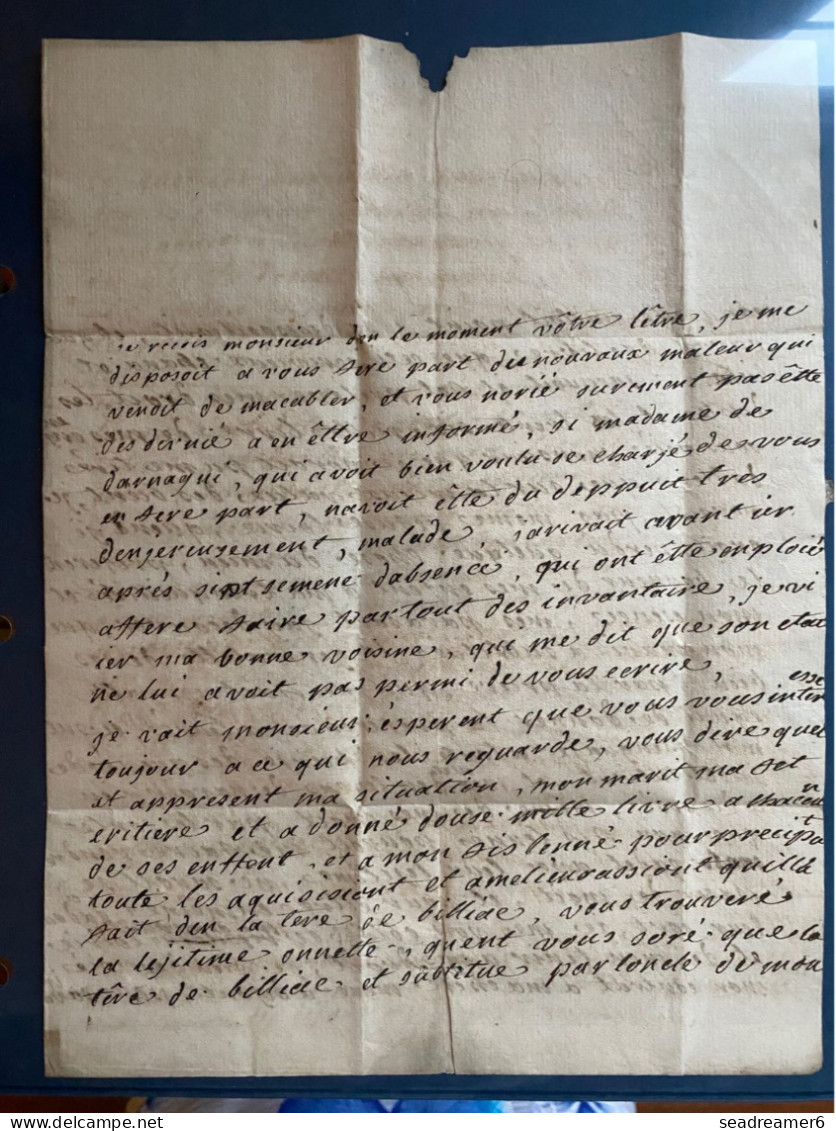 je recois monsieur den le moment vôtre lêtre, je me
disposoit a vous fere part du nouvaux maleur qui
venoit de macabler, et vous norié surement pas êtte
des dernié a en êttre informé, si madame de
darnaqui, qui avoit bien voulu se charjé de vous
en fere part, navoit êtte du deppuit tres
denjereuzement, malade, jarivait avant ier
aprés sipt semene dabsence, qui ont êtte emploié
affere faire partout des invantaire, je vi
ier ma bonne voisine, qui me dit que son etat
ne lui avoit pas permi de vous ecrire,
je vait monsieur, ésperent que vous vous interesse
toujour a ce qui nous reguarde, vous dire quel
et appresent ma situation, mon marit ma fet
eritiere et a donné douse mille livre a chacun
de ses enffent, et a mon fis lenné pour precipt
toute les aquisisiont et amelieurassiont quilla
fait den la tere de billiac, vous trouveré
la lejitime onnette, quent vous soré que la
têre de billiac et subtitue par loncle de mon
seadreamer6